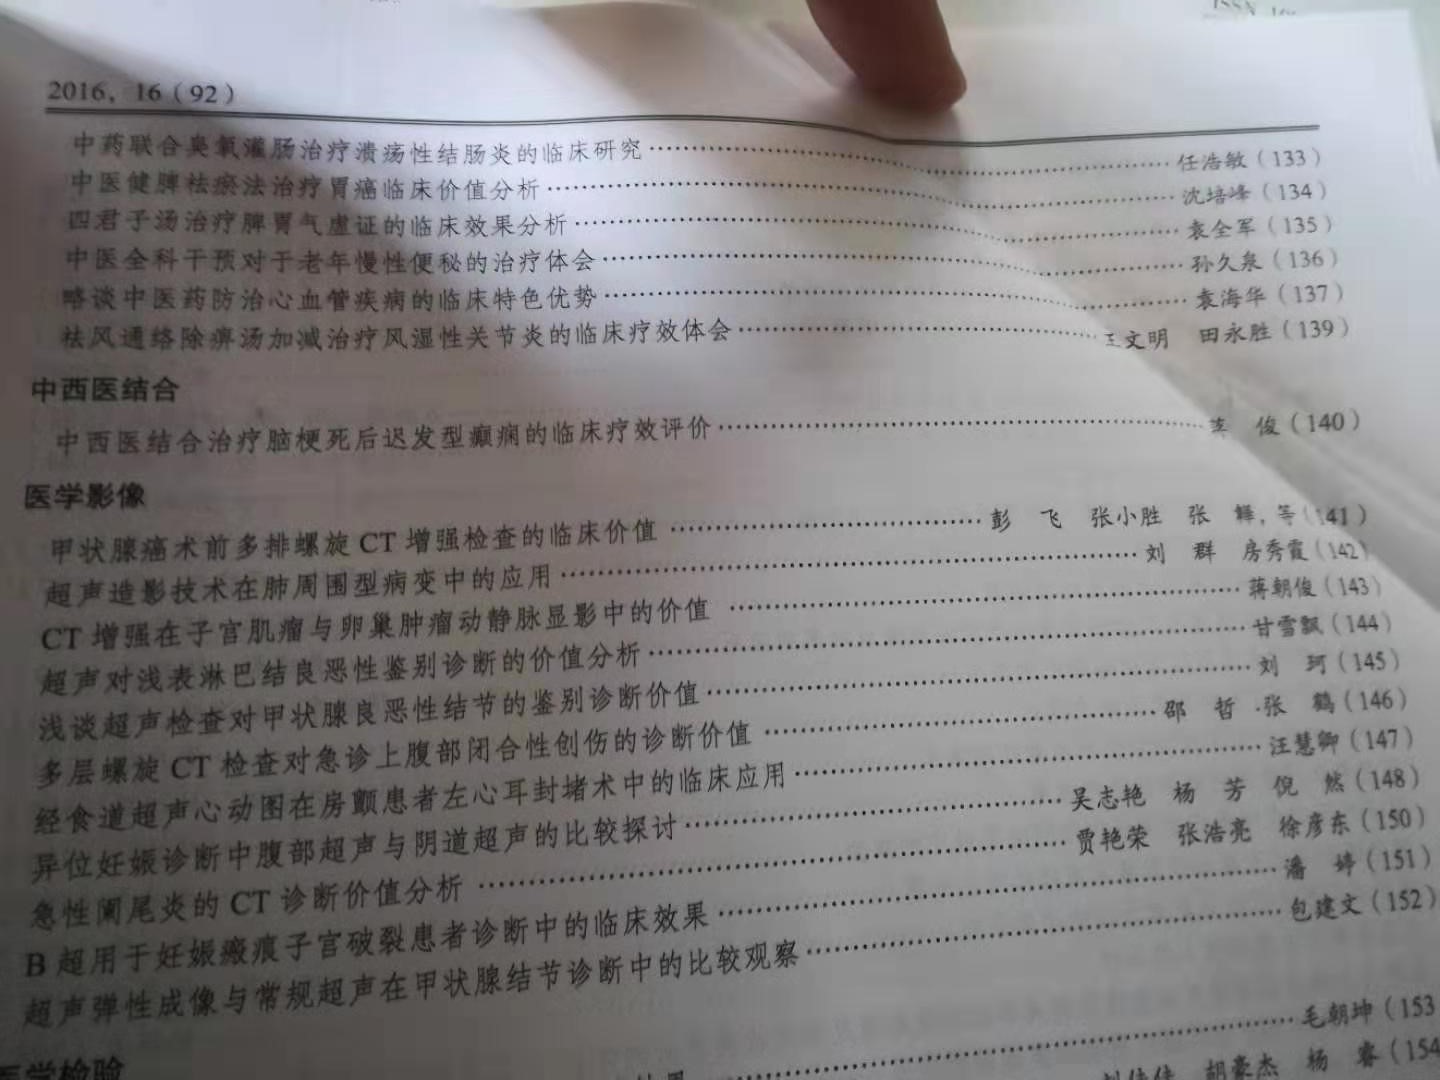 2016，16（92）
中药联合臭氧灌肠治疗溃疡性结肠炎的临床研究……任浩敏（133）
中医健脾祛瘀法治疗胃癌临床价值分析……沈培峰（134）
四君子汤治疗脾胃气虚证的临床效果分析……袁全军（135）
中医全科干预对于老年慢性便秘的治疗体会……孙久泉（136）
略谈中医药防治心血管疾病的临床特色优势……袁海华（137）
祛风通络除痹汤加减治疗风湿性关节炎的临床疗效体会……王文明 田永胜（139）
中西医结合
中西医结合治疗脑梗死后迟发型癫痫的临床疗效评价…… 俊（140）
医学影像
甲状腺癌术前多排螺旋CT增强检查的临床价值……彭 飞 张小胜 张 ，等（141）
超声造影技术在肺周围型病变中的应用……刘 群 房秀霞（142）
CT增强在子宫肌瘤与卵巢肿瘤动静脉显影中的价值……蒋朝俊（143）
超声对浅表淋巴结良恶性鉴别诊断的价值分析……甘雪飘（144）
浅谈超声检查对甲状腺良恶性结节的鉴别诊断价值……刘 珂（145）
多层螺旋CT检查对急诊上腹部闭合性创伤的诊断价值……邵 哲 张 鹤（146）
经食道超声心动图在房颤患者左心耳封堵术中的临床应用……汪慧卿（147）
异位妊娠诊断中腹部超声与阴道超声的比较探讨……吴志艳 杨 芳 倪 然（148）
急性阑尾炎的CT诊断价值分析……贾艳荣 张浩亮 徐彦东（150）
B超用于妊娠瘢痕子宫破裂患者诊断中的临床效果……潘 婷（151）
超声弹性成像与常规超声在甲状腺结节诊断中的比较观察……包建文（152）
医学检验
……毛朝坤（153
胡豪杰 杨 睿（154